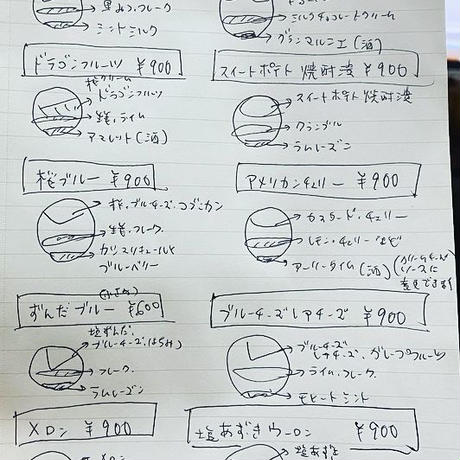 黒みつ、フレーク
ミントミルク
ミルクチョコレートクリーム
グランマルニエ(酒)
ドラゴンフルーツ ¥900
桜クリーム
ドラゴンフルーツ
生姜、ライム
アマレット(酒)
スイートポテト 焼酎漬 ¥900
スイートポテト 焼酎漬
クランブル
ラムレーズン
桜ブルー ¥900
桜、ブルーチーズ、コブミカン
生姜、フレーク
カシスリキュールと
ブルーベリー
アメリカンチェリー ¥900
カスタード・チェリー
レモン・チェリー
アーリータイム(酒)
(クリームチーズ
ソースに
変更できます)
ずんだブルー ¥600
(小さめ)
塩ずんだ、
ブルーチーズ、はちみつ
フレーク
ラムレーズン
ブルーチーズレアチーズ ¥900
ブルーチーズ
レアチーズ、グレープフルーツ
ライム、フレーク
モヒートミント
メロン ¥900
メロン
塩あずきウーロン ¥900
塩あずき